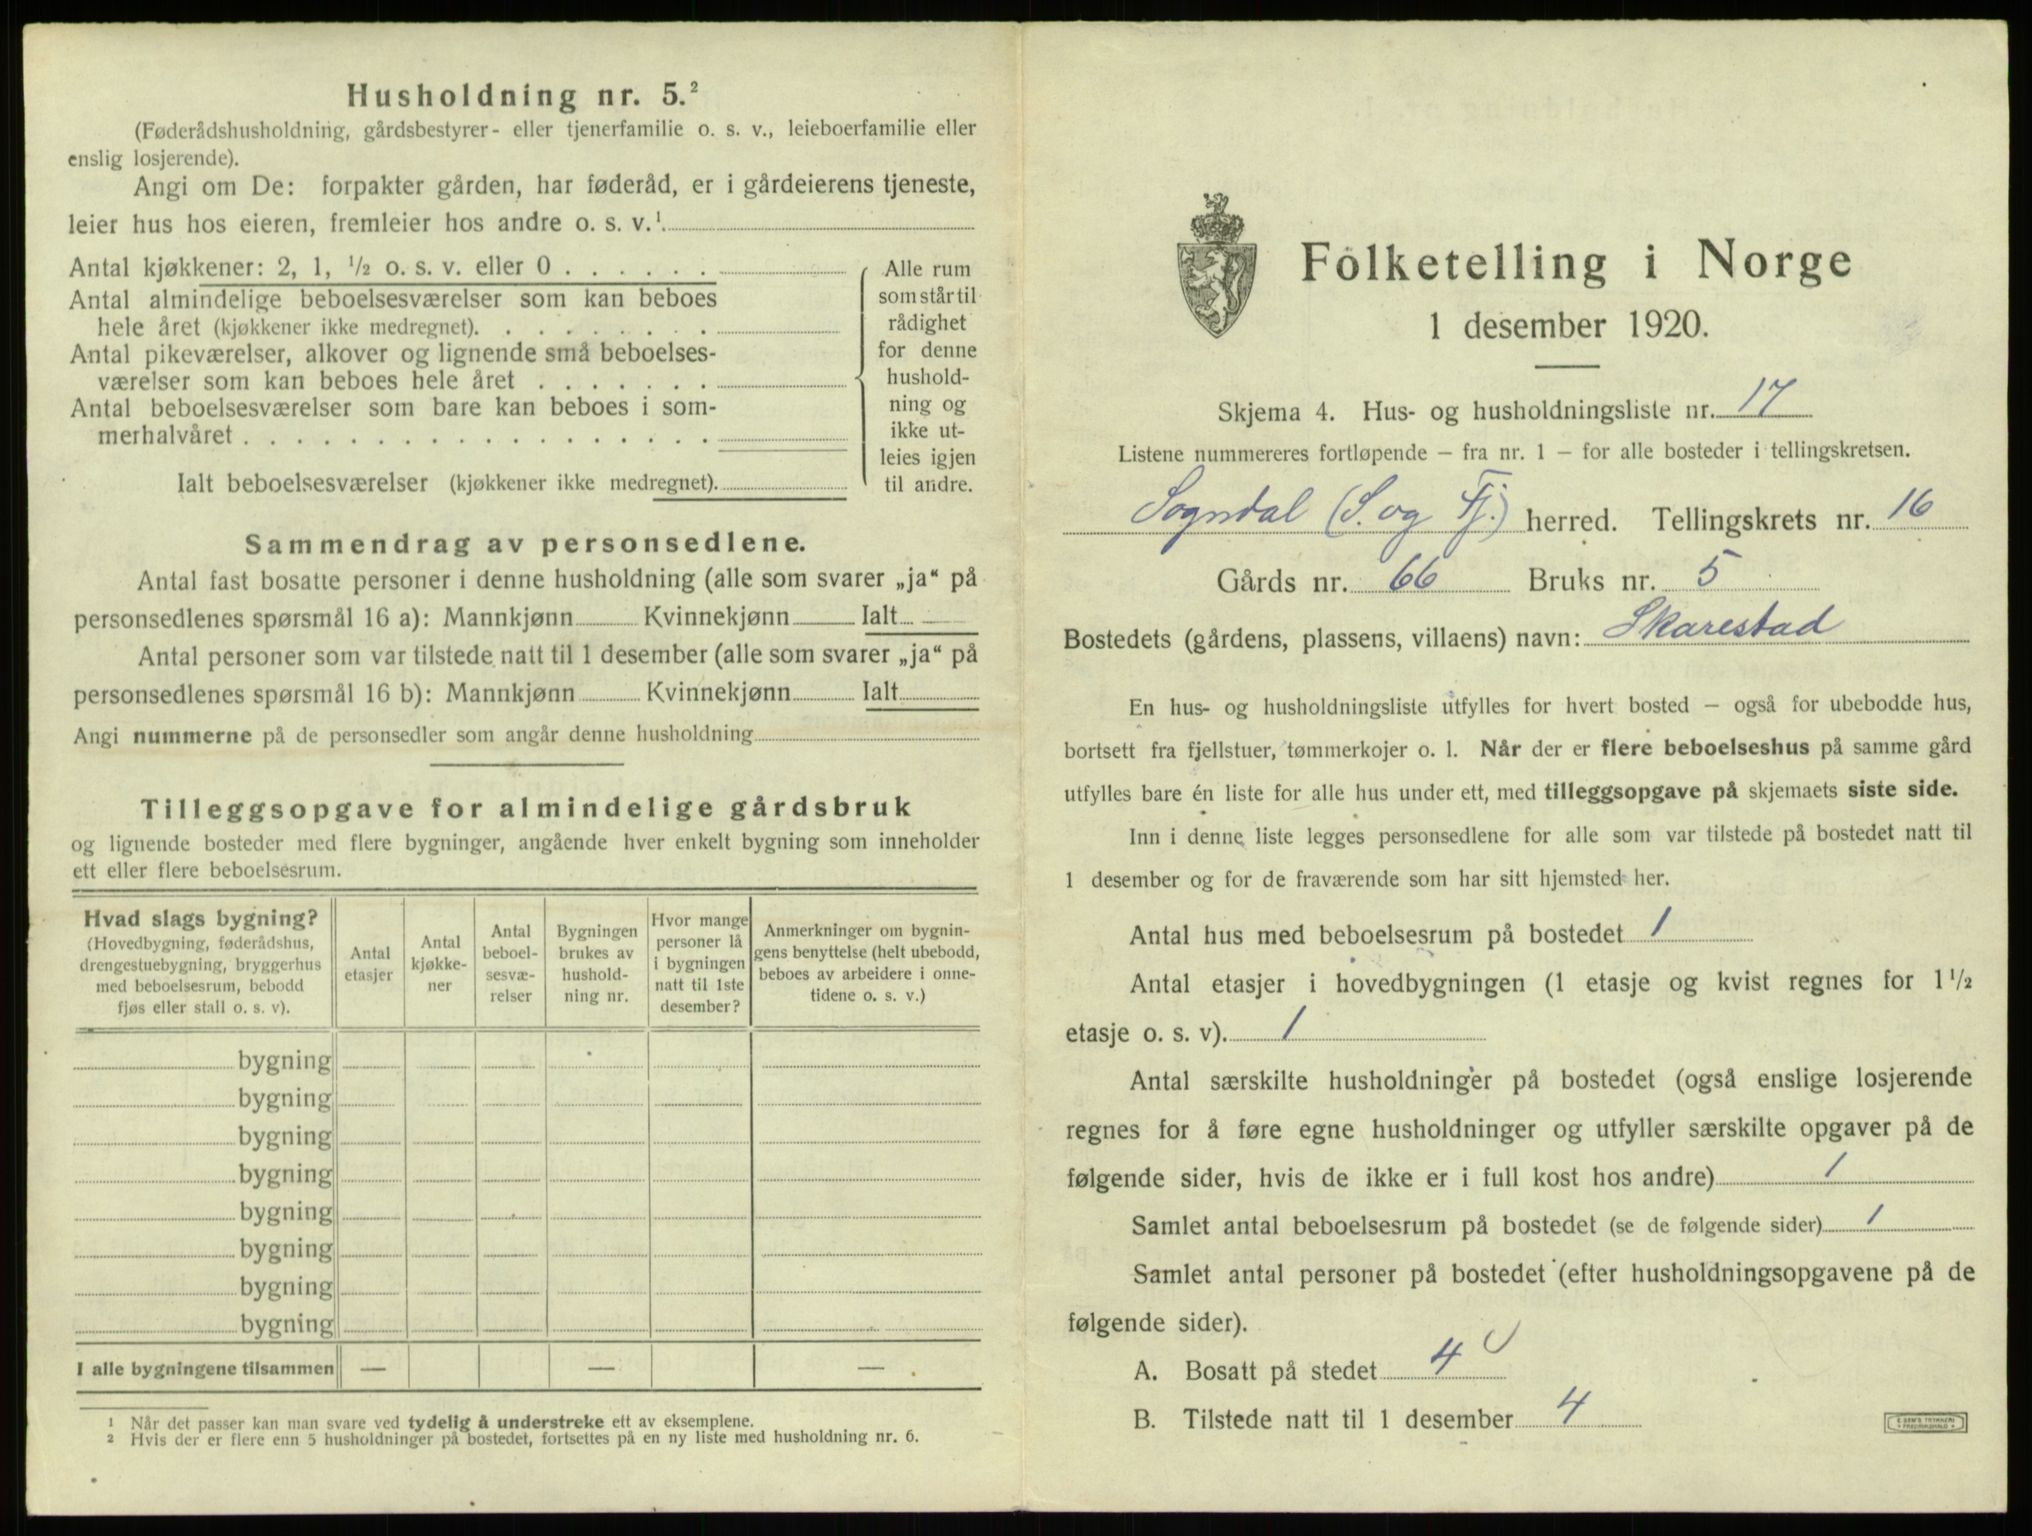 Husholdning nr. 5.²
(Føderådshusholdning, gårdsbestyrer- eller tjenerfamilie o. s. v., leieboerfamilie eller
enslig losjerende).
Angi om De: forpakter gården, har føderåd, er i gårdeierens tjeneste,
leier hus hos eieren, fremleier hos andre o. s. v.¹
Antal kjøkkener: 2, 1, ½ o. s. v. eller 0 . . . . . .
Antal almindelige beboelsesværelser som kan beboes
hele året (kjøkkener ikke medregnet). . . . . . . . .
Antal pikeværelser, alkover og lignende små beboelses-
værelser som kan beboes hele året . . . . . . .
Antal beboelsesværelser som bare kan beboes i som-
merhalvåret . . . . . . . . . . . . . . . . . .
Ialt beboelsesværelser (kjøkkener ikke medregnet).
Alle rum
som står til
rådighet
for denne
hushold-
ning og
ikke ut-
leies igjen
til andre.
Sammendrag av personsedlene.
Antal fast bosatte personer i denne husholdning (alle som svarer „ja“ på
personsedlenes spørsmål 16 a): Mannkjønn Kvinnekjønn Ialt
Antal personer som var tilstede natt til 1 desember (alle som svarer „ja“ på
personsedlenes spørsmål 16 b): Mannkjønn Kvinnekjønn Ialt
Angi nummerne på de personsedler som angår denne husholdning
Tilleggsopgave for almindelige gårdsbruk
og lignende bosteder med flere bygninger, angående hver enkelt bygning som inneholder
ett eller flere beboelsesrum.
Hvad slags bygning?
(Hovedbygning, føderådshus,
drengestuebygning, bryggerhus
med beboelsesrum, bebodd
fjøs eller stall o. s. v).
Antal
etasjer
Antal
kjøkke-
ner
Antal
beboel-
sesvæ-
relser
Bygningen
brukes av
hushold-
ning nr.
Hvor mange
personer lå
i bygningen
natt til 1ste
desember?
Anmerkninger om bygnin-
gens benyttelse (helt ubebodd,
beboes av arbeidere i onne-
tidene o. s. v.)
bygning
bygning
bygning
bygning
bygning
bygning
bygning
bygning
I alle bygningene tilsammen — — —
¹ Når det passer kan man svare ved tydelig å understreke ett av eksemplene.
² Hvis der er flere enn 5 husholdninger på bostedet, fortsettes på en ny liste med husholdning nr. 6.
Folketelling i Norge
1 desember 1920.
Skjema 4. Hus- og husholdningsliste nr. 17
Listene nummereres fortløpende – fra nr. 1 – for alle bosteder i tellingskretsen.
Sogndal (S. og Fj.) herred. Tellingskrets nr. 16
Gårds nr. 66 Bruks nr. 5
Bostedets (gårdens, plassens, villaens) navn: Skarestad
En hus- og husholdningsliste utfylles for hvert bosted – også for ubebodde hus,
bortsett fra fjellstuer, tømmerkojer o. l. Når der er flere beboelseshus på samme gård
utfylles bare én liste for alle hus under ett, med tilleggsopgave på skjemaets siste side.
Inn i denne liste legges personsedlene for alle som var tilstede på bostedet natt til
1 desember og for de fraværende som har sitt hjemsted her.
Antal hus med beboelsesrum på bostedet 1
Antal etasjer i hovedbygningen (1 etasje og kvist regnes for 1½
etasje o. s. v). 1
Antal særskilte husholdninger på bostedet (også enslige losjerende
regnes for å føre egne husholdninger og utfyller særskilte opgaver på de
følgende sider, hvis de ikke er i full kost hos andre) 1
Samlet antal beboelsesrum på bostedet (se de følgende sider) 1
Samlet antal personer på bostedet (efter husholdningsopgavene på de
følgende sider).
A. Bosatt på stedet 4
B. Tilstede natt til 1 desember 4